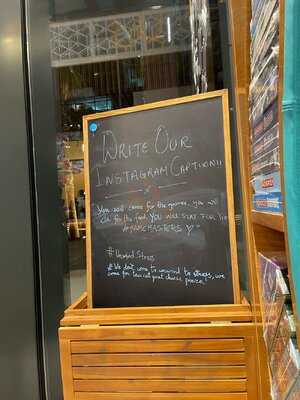 Write Our
Instagram Caption!!
"You will come for the games, you will
for the food. You will stay for the
#GAMEMASTERS
# Unwind Stress
# We don't come to unwind to stress, we
come for low cal goat cheese pizza!